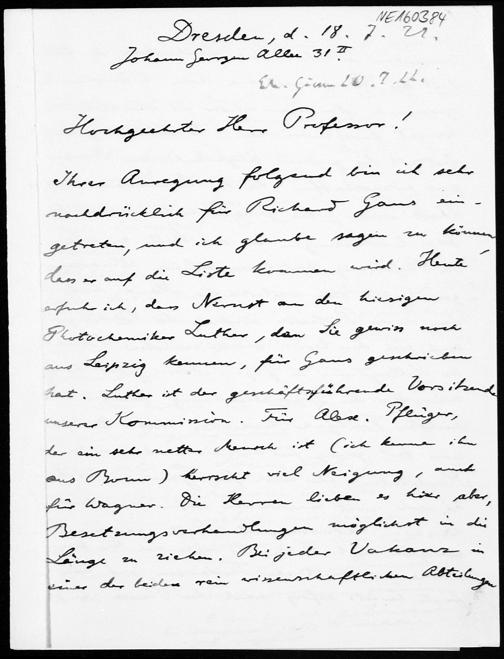 NE160384
Dresden, d. 18. 7. 22.
Johann Georgen Allee 31 II.
Hochgeehrter Herr Professor!
Ihrer Anregung folgend bin ich sehr
nachdrücklich für Richard Gans ein-
getreten, und ich glaube sagen zu können,
dass er auf die Liste kommen wird. Heute
erfuhr ich, dass Nernst an den hiesigen
Photochemiker Luther, den Sie gewiss noch
aus Leipzig kennen, für Gans geschrieben
hat. Luther ist der geschäftsführende Vorsitzende
unserer Kommission. Für Alex. Pflüger,
der ein sehr netter Mensch ist (ich kenne ihn
aus Bonn) herrscht viel Neigung, auch
für Wagner. Die Herren lieben es hier aber,
Besetzungsverhandlungen möglichst in die
Länge zu ziehen. Bei jeder Vakanz in
einer der beiden rein wissenschaftlichen Abteilungen